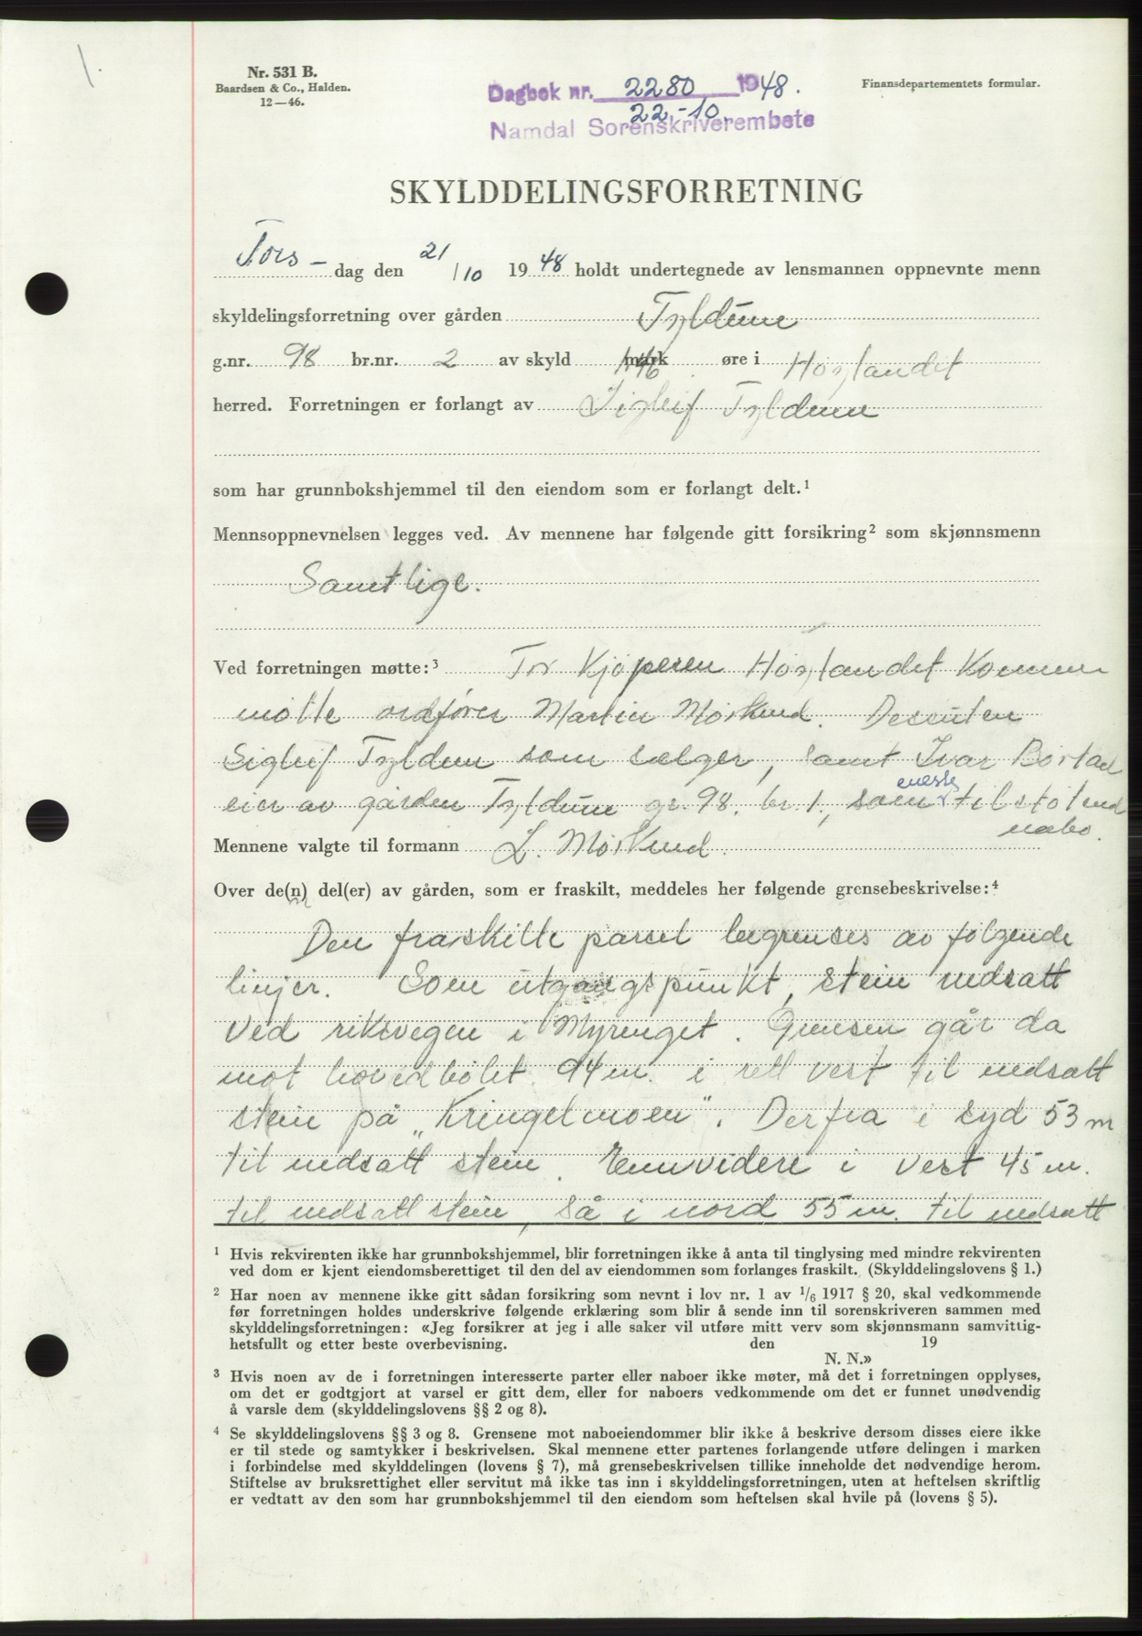 1.
Nr. 531 B.
Baardsen & Co., Halden.
12—46.
Dagbok nr. 2280 1948.
22-10
Namdal Sorenskriverembete
Finansdepartementets formular.
SKYLDDELINGSFORRETNING
Tors- dag den 21/10 1948 holdt undertegnede av lensmannen oppnevnte menn
skyldelingsforretning over gården Tyldum
g.nr. 98 br.nr. 2 av skyld mark 46 øre i Høylandet
herred. Forretningen er forlangt av Sigleif Tyldum
som har grunnbokshjemmel til den eiendom som er forlangt delt.¹
Mennsoppnevnelsen legges ved. Av mennene har følgende gitt forsikring² som skjønnsmenn
Samtlige.
Ved forretningen møtte:³ For Kjøperen Høylandet Kommun
møtte ordfører Martin Mørkved. Desuten
Sigleif Tyldum som selger, samt Ivar Børstad
eier av gården Tyldum gr. 98. br. 1., som eneste tilstøtend
nabo.
Mennene valgte til formann L. Mørkved.
Over de(n) del(er) av gården, som er fraskilt, meddeles her følgende grensebeskrivelse:⁴
Den fraskilte parsel begrenses av følgende
linjer. Som utgangspunkt, stein nedsatt
ved riksvegen i Myrenget. Grensen går da
mot hovedbølet 94 m. i rett vest til nedsatt
stein på „Kringelmoen". Derfra i syd 53 m
til nedsatt stein. Ennvidere i vest 45 m.
til nedsatt stein, så i nord 55 m. til nedsatt
¹ Hvis rekvirenten ikke har grunnbokshjemmel, blir forretningen ikke å anta til tinglysing med mindre rekvirenten
ved dom er kjent eiendomsberettiget til den del av eiendommen som forlanges fraskilt. (Skylddelingslovens § 1.)
² Har noen av mennene ikke gitt sådan forsikring som nevnt i lov nr. 1 av 1/6 1917 § 20, skal vedkommende
før forretningen holdes underskrive følgende erklæring som blir å sende inn til sorenskriveren sammen med
skylddelingsforretningen: «Jeg forsikrer at jeg i alle saker vil utføre mitt verv som skjønnsmann samvittig-
hetsfullt og etter beste overbevisning. den 19
N. N.»
³ Hvis noen av de i forretningen interesserte parter eller naboer ikke møter, må det i forretningen opplyses,
om det er godtgjort at varsel er gitt dem, eller for naboers vedkommende om det er funnet unødvendig
å varsle dem (skylddelingslovens §§ 2 og 8).
⁴ Se skylddelingslovens §§ 3 og 8. Grensene mot naboeiendommer blir ikke å beskrive dersom disses eiere ikke
er til stede og samtykker i beskrivelsen. Skal mennene etter partenes forlangende utføre delingen i marken
i forbindelse med skylddelingen (lovens § 7), må grensebeskrivelsen tillike inneholde det nødvendige herom.
Stiftelse av bruksrettighet eller servitut må ikke tas inn i skylddelingsforretningen, uten at heftelsen skriftlig
er vedtatt av den som har grunnbokshjemmel til den eiendom som heftelsen skal hvile på (lovens § 5).